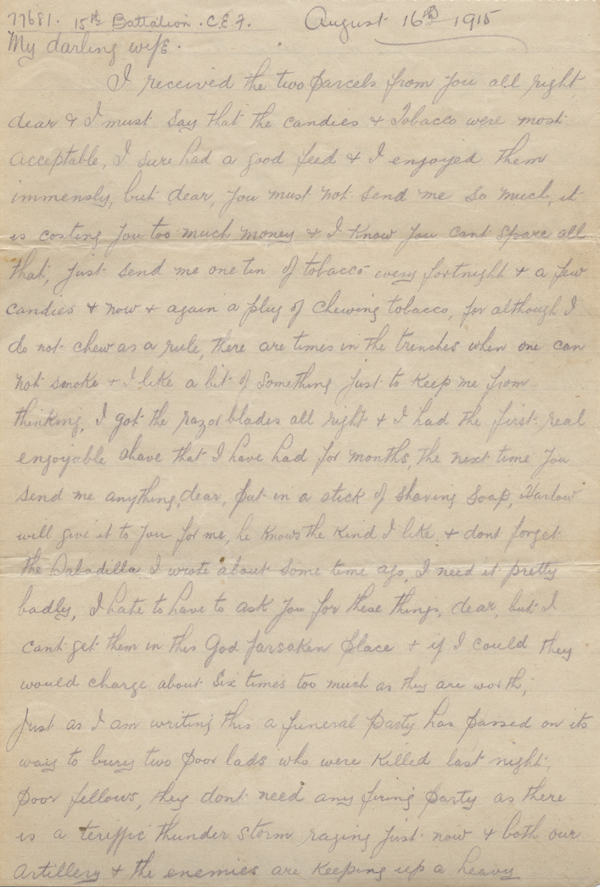 77681. 15th Battalion. C.E.F. August 16th 1915
My darling wife.
I received the two parcels from you all right
dear & I must say that the candies & Tobacco were most
acceptable, I sure had a good feed & I enjoyed them
immensly, but dear, you must not send me so much, it
is costing you too much money & I know you cant spare all
that, just send me one tin of tobacco every fortnight & a few
candies & now & again a plug of chewing tobacco, for although I
do not chew as a rule, there are times in the trenches when one can
not smoke & I like a bit of something just to keep me from
thinking, I got the razor blades all right & I had the first real
enjoyable shave that I have had for months, the next time you
send me anything, dear, put in a stick of shaving soap, Harlow
will give it to you for me, he knows the kind I like & dont forget
the I wrote about some time ago, I need it pretty
badly, I hate to have to ask you for these things, dear, but I
cant get them in this God forsaken place & if I could they
would charge about six times too much as they are worth,
Just as I am writing this a funeral party has passed on its
way to bury two poor lads who were killed last night,
poor fellows, they dont need any firing party as there
is a teriffic thunder storm raging just now & both our
artillery & the enemies are keeping up a heavy